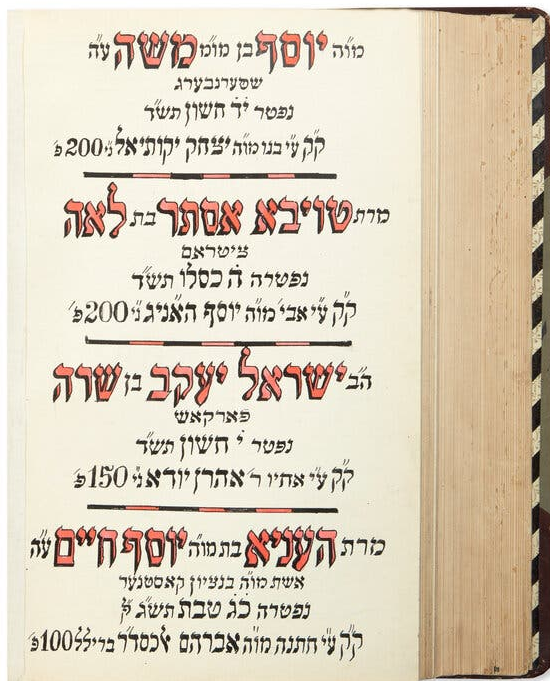 מו״ה יוסף בן מו״מ משה ע״ה
שטערנבערג
נפטר י״ד חשון תש״ד
ק״ק ע״י בנו מו״ה יצחק יקותיאל נ״י 200 פ׳
מרת טויבא אסתר בת לאה
ציטראם
נפטרה ה׳ כסלו תש״ד
ק״ק ע״י אבי׳ מו״ה יוסף האניג נ״י 200 פ׳
ה״ב ישראל יעקב בן שרה
פארקאש
נפטר י׳ חשון תש״ד
ק״ק ע״י אחיו ר׳ אהרן יודא נ״י 150 פ׳
מרת העניא בת מו״ה יוסף חיים ע״ה
אשת מו״ה בנציון קאסטנער
נפטרה כ״ג טבת תש״ג
ק״ק ע״י חתנה מו״ה אברהם 100 פ׳